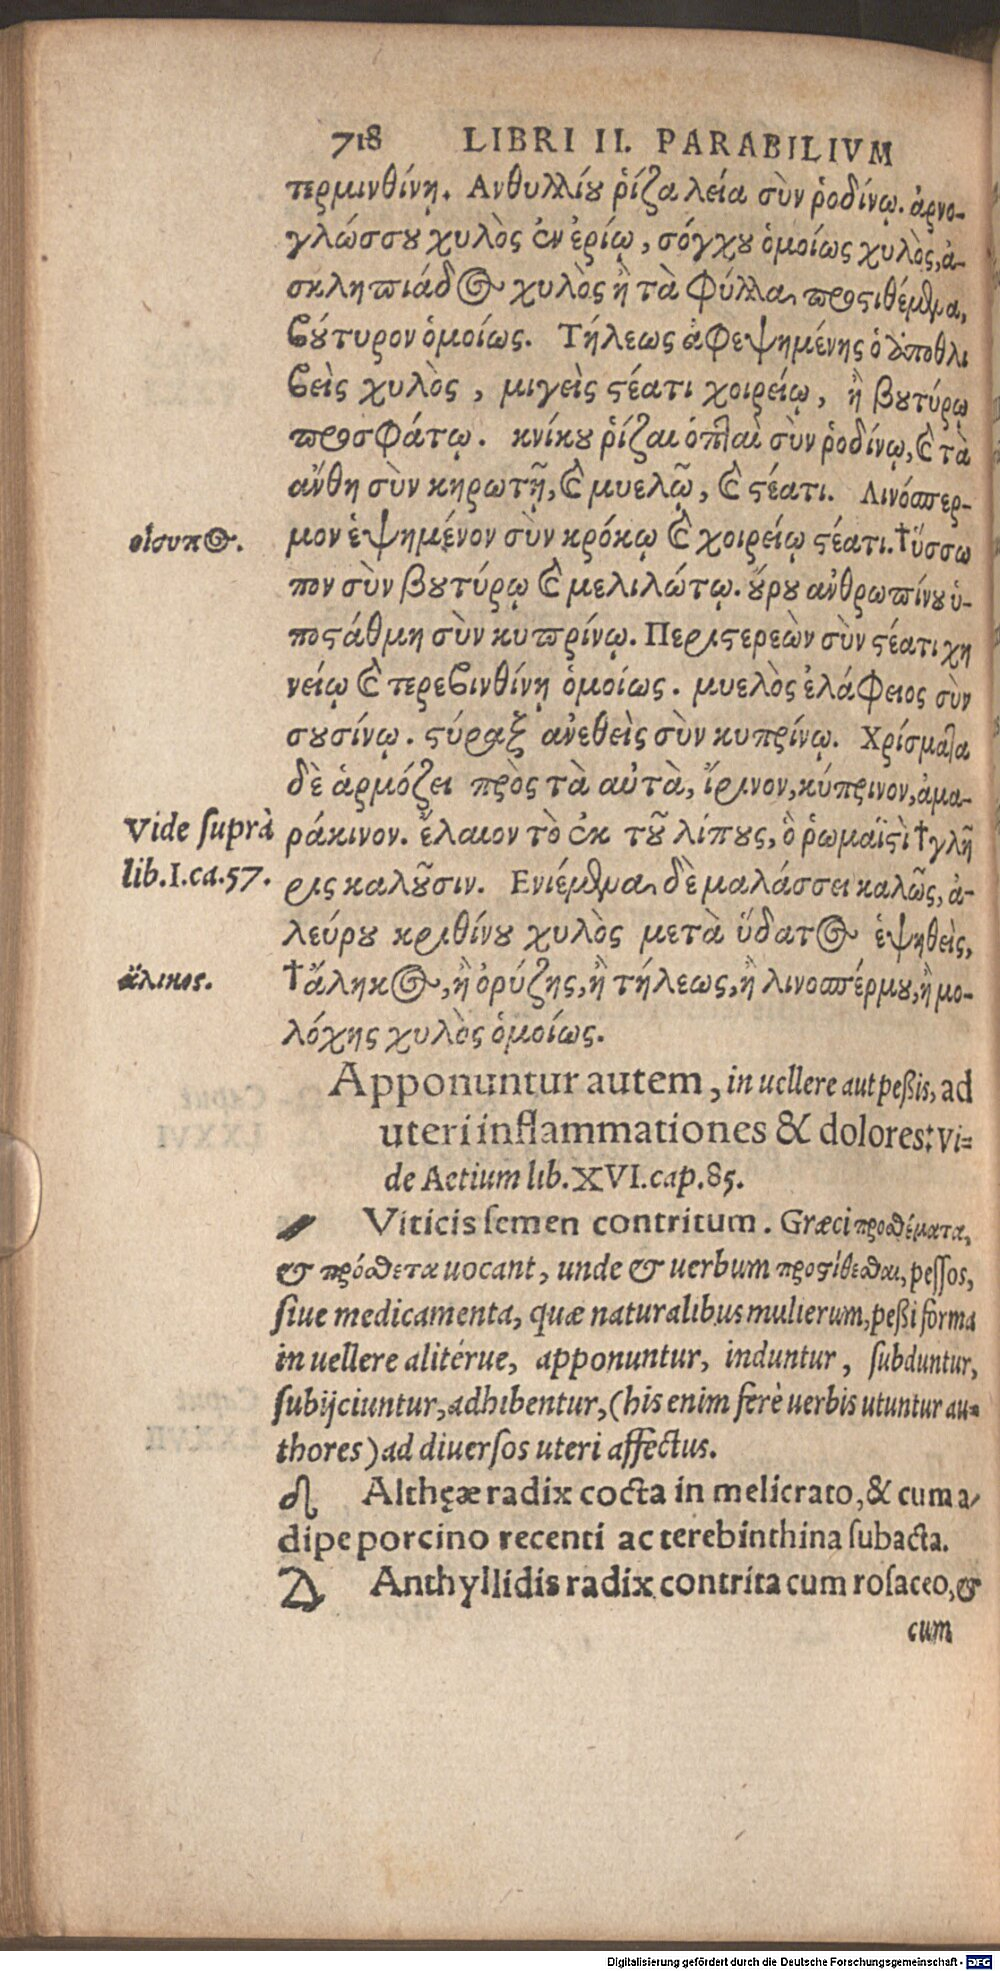 718 LIBRI II. PARABILIVM
τερμινθίνῃ. Ανθυλλίου ῥίζα λεία σὺν ῥοδίνῳ. ἀρνο-
γλώσσου χυλὸς ἐν ἐρίῳ, σόγχου ὁμοίως χυλὸς, ἀ-
σκληπιάδος χυλὸς ἢ τὰ φύλλα προστιθέμενα,
βούτυρον ὁμοίως. Τήλεως ἀφεψημένης ὁ ἀποθλι
βεὶς χυλὸς, μιγεὶς στέατι χοιρείῳ, ἢ βουτύρῳ
προσφάτῳ. κνίκου ῥίζαι ὀπταὶ σὺν ῥοδίνῳ, καὶ τὰ
ἄνθη σὺν κηρωτῇ, καὶ μυελῷ, καὶ στέατι. Λινόσπερ-
οἴσυπος.
μον ἑψημένον σὺν κρόκῳ καὶ χοιρείῳ στέατι. †ὕσσω
πον σὺν βουτύρῳ καὶ μελιλώτῳ. οὔρου ἀνθρωπίνου ὑ-
ποστάθμη σὺν κυπρίνῳ. Περιστερεὼν σὺν στέατι χη
νείῳ καὶ τερεβινθίνῃ ὁμοίως. μυελὸς ἐλάφειος σὺν
σουσίνῳ. στύραξ ἀνεθεὶς σὺν κυπρίνῳ. Χρίσματα
δὲ ἁρμόζει πρὸς τὰ αὐτὰ, ἴρινον, κύπρινον, ἀμα-
Vide suprà
lib.I.ca.57.
ράκινον. ἔλαιον τὸ ἐκ τοῦ λίπους, ὃ ῥωμαϊστὶ †γλῆ
ρις καλοῦσιν. Ενιέμενα δὲ μαλάσσει καλῶς, ἀ-
λεύρου κριθίνου χυλὸς μετὰ ὕδατος ἑψηθεὶς,
ἄλικος.
†ἄληκος, ἢ ὀρύζης, ἢ τήλεως, ἢ λινοσπέρμου, ἢ μο-
λόχης χυλὸς ὁμοίως.
Apponuntur autem, in uellere aut peßis, ad
uteri inflammationes & dolores: Vi=
de Aetium lib.XVI.cap.85.
Viticis semen contritum. Græci προσθέματα,
& πρόσθετα uocant, unde & uerbum προστίθεσθαι, pessos,
siue medicamenta, quæ naturalibus mulierum, peßi forma
in uellere alitérue, apponuntur, induntur, subduntur,
subijciuntur, adhibentur, (his enim ferè uerbis utuntur au=
thores) ad diuersos uteri affectus.
Althęæ radix cocta in melicrato, & cum a-
dipe porcino recenti ac terebinthina subacta.
Anthyllidis radix contrita cum rosaceo, &
cum
Digitalisierung gefördert durch die Deutsche Forschungsgemeinschaft - DFG